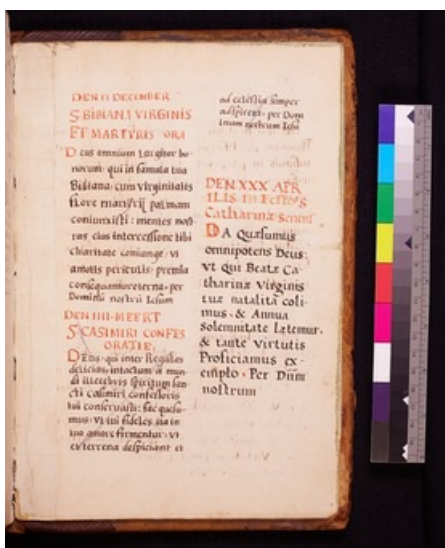 DEN II DECEMBER
S BIBIANA VIRGINIS
ET MARTYRIS ORA
Deus omnium Largitor bo-
norum: qui in famula tua
Bibiana: cum virginitatis
flore martyrij palmam
coniunxisti: mentes nost
ras eius intercessione tibi
charitate coniunge: vt
amotis periculis: premia
consequamur eterna. per
Dominū nostrū Iesum
DEN IIII MEERT
S CASIMIRI CONFES
ORATIE.
Deus, qui inter Regales
delicias, intactum a mun
di illecebris spiritum san
cti casimiri confessoris
tui conservasti: fac quesu-
mus: vt tui fideles ita in
tuo amore firmentur: vt
et terrena despiciant et
ad celestia semper
aspirent. per Dom
inum nostrum Iesū
DEN XXX APR
ILIS. in Festo S
Catharinæ Senens
DA Quæsumus
omnipotens Deus:
vt qui Beatæ Ca-
tharinæ Virginis
tuæ natalitia coli-
mus. & Annua
solemnitate Lætemur.
& tantæ virtutis
Proficiamus ex-
emplo. Per Dnm
nostrum